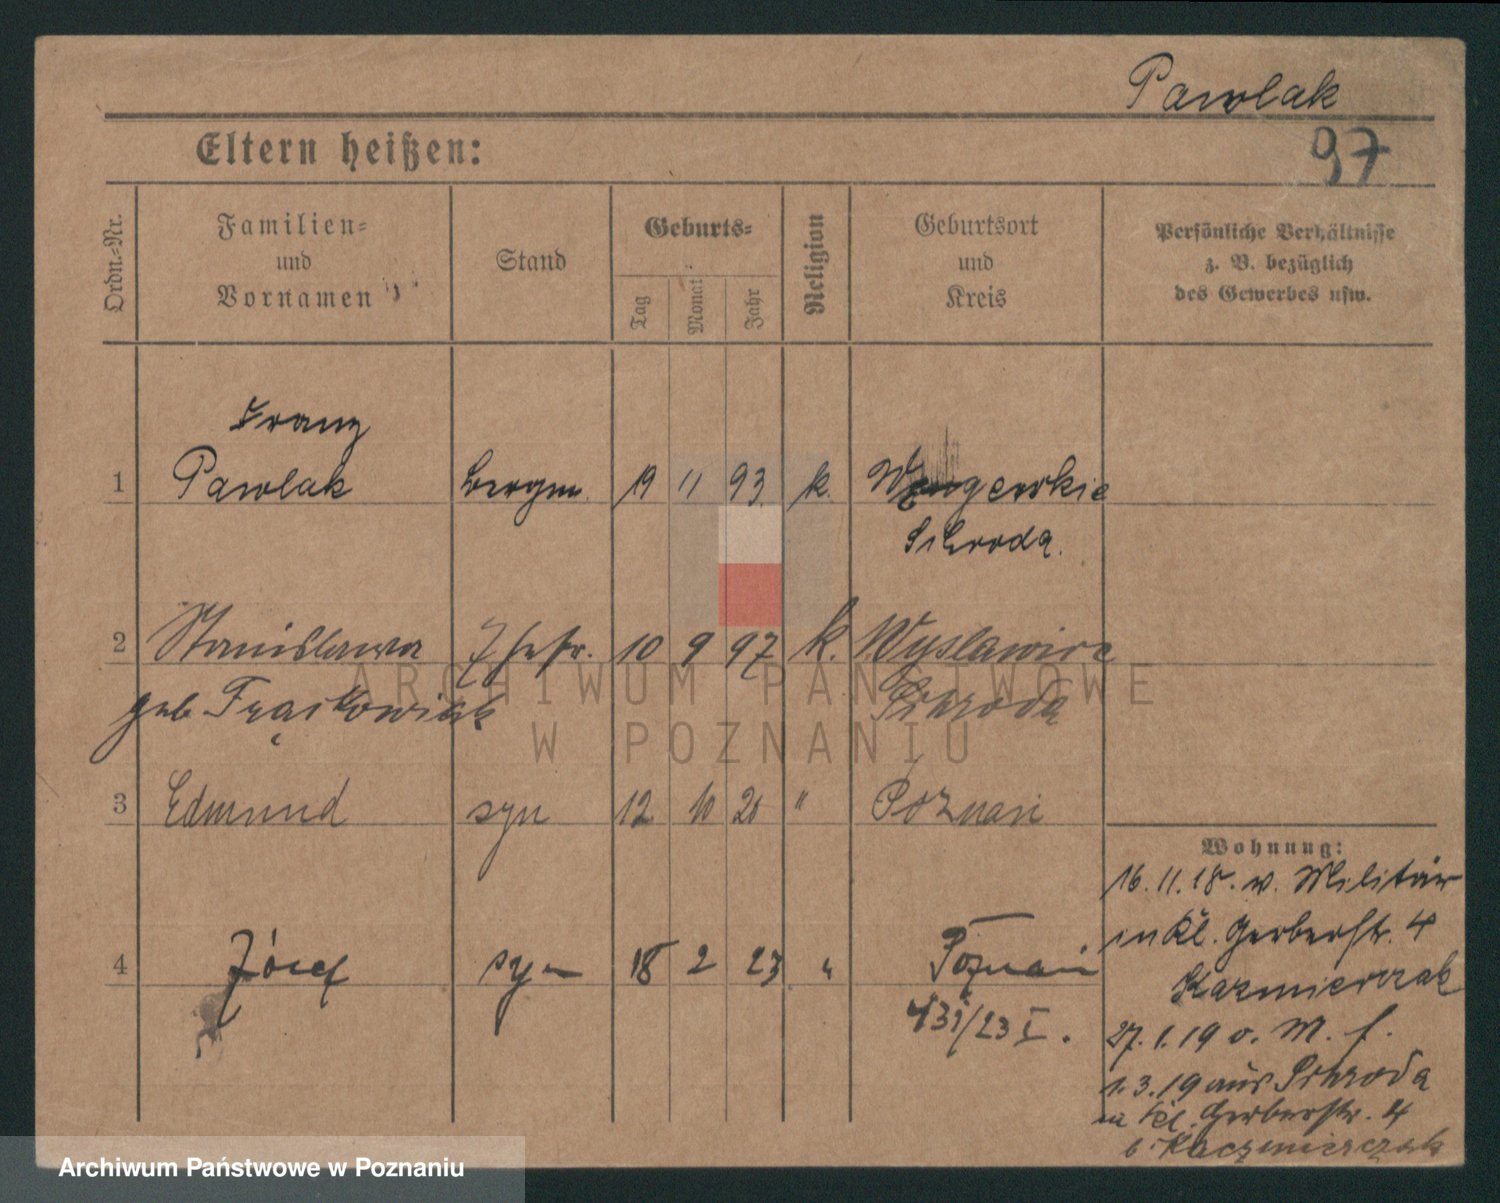 Pawlak
97
Eltern heißen:
Ordn.-Nr.
Familien-
und
Vornamen
Stand
Geburts-
Tag
Monat
Jahr
Religion
Geburtsort
und
Kreis
Persönliche Verhältnisse
z. B. bezüglich
des Gewerbes usw.
Franz
1 Pawlak Bergm. 19 11 93 k. Wengerskie
Schroda.
2 Stanislawa Ehefr. 10 9 97 k. Wyslawice
geb Frąckowiak Schroda
3 Edmund syn 12 10 20 " Poznań
4 Józef syn 18 2 23 " Poznań
/23 I.
Wohnung:
16.11.18. v. Militär
in Kl. Gerberstr. 4
Kazmierczak
27.1.19 o. M. f.
1.3.19 aus Schroda
in Kl. Gerberstr. 4
b. Kaczmierczak
ARCHIWUM PAŃSTWOWE
W POZNANIU
Archiwum Państwowe w Poznaniu